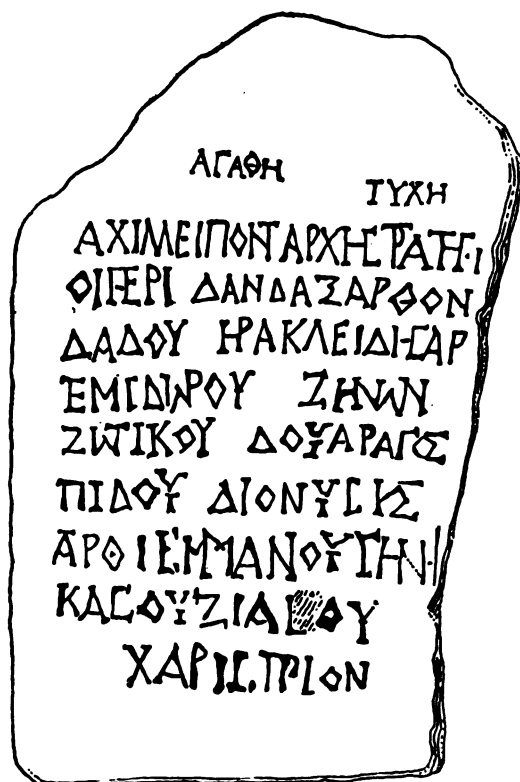 ΑΓΑΘΗ
ΤΥΧΗ
ΑΧΙΛΛΕΙΠΟΝΤΑΡΧΗϹΤΡΑΤΗΓΙ
ΟΙΠΕΡΙ ΔΑΝΔΑΞΑΡΘΟΝ
ΔΑΔΟΥ ΗΡΑΚΛΕΙΔΗϹΑΡ
ΤΕΜΙΔΩΡΟΥ ΖΗΝΩΝ
ΖΩΤΙΚΟΥ ΔΟΥΑΡΑΓΟΣ
ΠΙΔΟΥ ΔΙΟΝΥϹΙΣ
ΑΡΘΙΕΜΜΑΝΟΥ
ΚΑϹΟΥ
ΧΑΡΙϹΤΗΡΙΟΝ